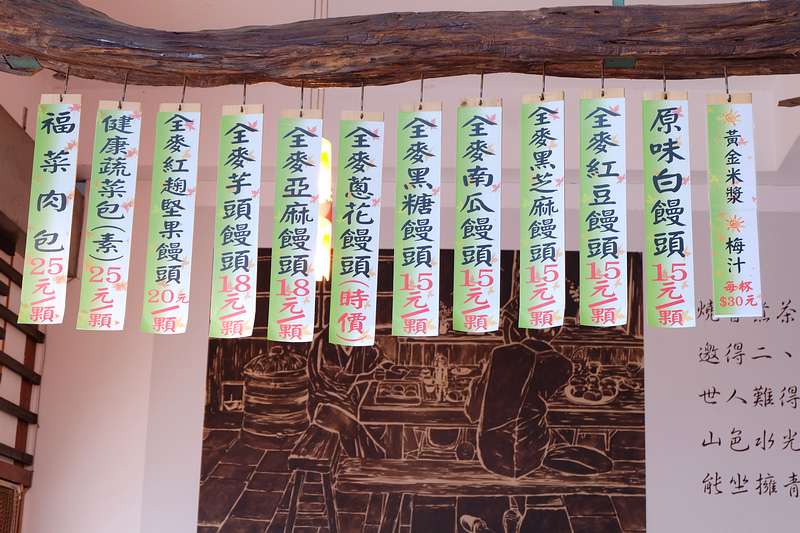 福菜肉包
25元/顆
健康蔬菜包(素)
25元/顆
全麥紅麴堅果饅頭
20元/顆
全麥芋頭饅頭
18元/顆
全麥亞麻饅頭
18元/顆
全麥蔥花饅頭(時價)
全麥黑糖饅頭
15元/顆
全麥南瓜饅頭
15元/顆
全麥黑芝麻饅頭
15元/顆
全麥紅豆饅頭
15元/顆
原味白饅頭
15元/顆
黃金米漿
梅汁
每杯
$30元
邀得二、
世人難得
山色水光
能坐擁青